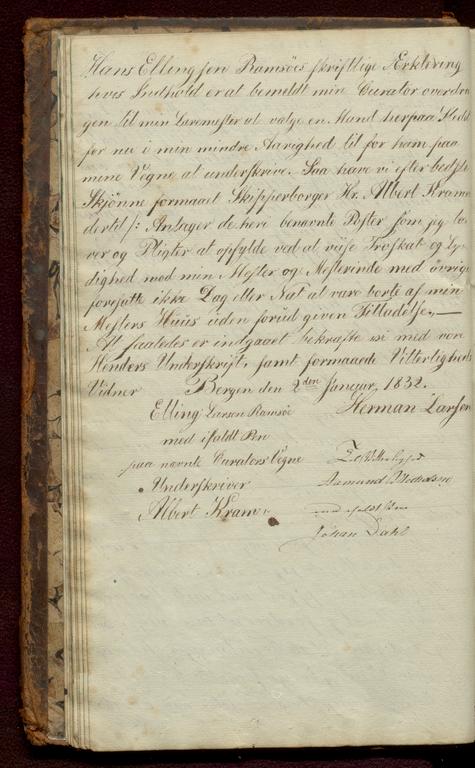 Hans Ellingsen Ramsöes skriftlige Erklering
hvis Indhold er at bemeldt min Curator overdra
gen til min Laremester at valge en Mand her paa Stedet
for nu i min mindre Aarighed til for ham paa
mine Vegne at underskrive. Saa have vi efter bedste
Skjönne formaaet Skipperborger Hr. Albert Krame
dertil /: Antager de heri benavnte Poster som jeg lo-
ver og Pligter at opfylde ved at viise Troskab og Ly-
dighed mod min Mester og Mesterinde med övrige
foresatte ikke Dag eller Nat at vare borte af min
Mesters Huus uden forud given Tilladelse.—
At saaledes er indgaaet bekrafte vi med vore
Henders Underskrift, samt formaaede Vitterligheds
Vidner Bergen den 2den Januar, 1832.
Elling Larsen Ramsöe Herman Larsen
med ifaldt Pen
paa navnte Curators Vegne Til Vitterlighed
Underskriver Asmund
Albert Kramer med ifaldt Pen
Johan Dahl